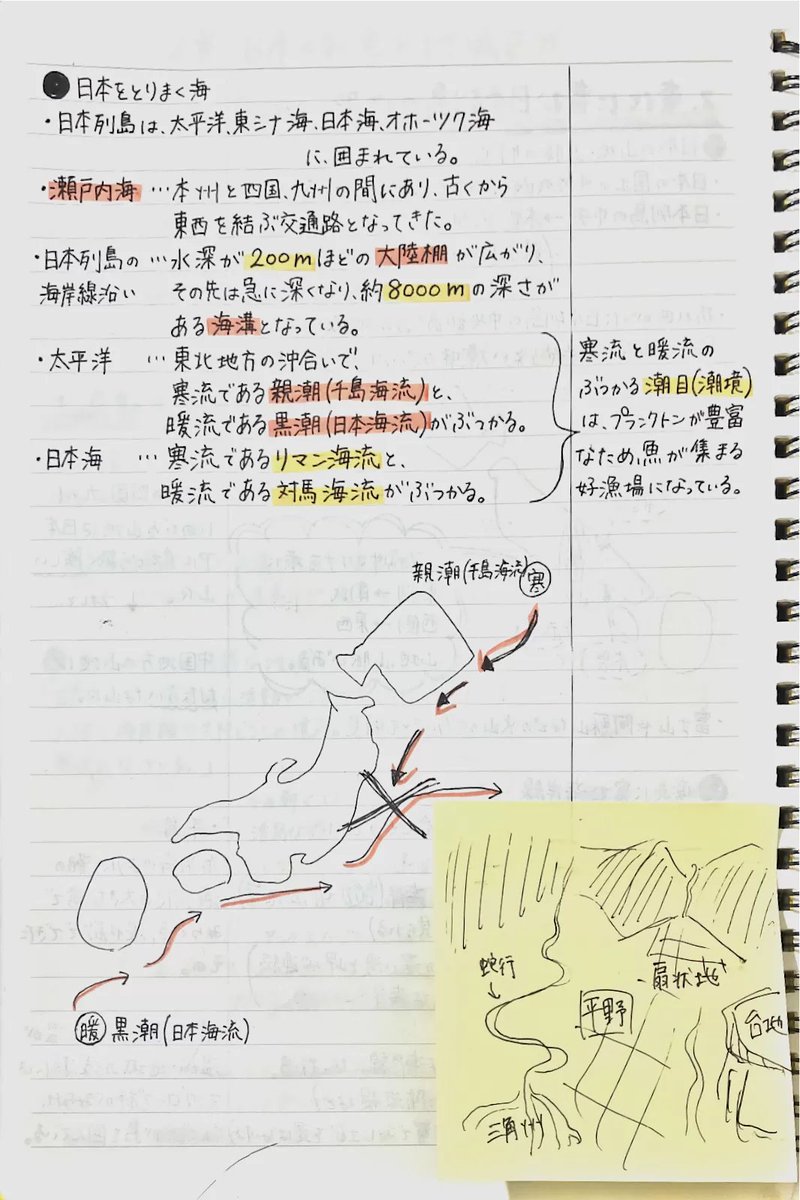 ●日本をとりまく海
・日本列島は、太平洋、東シナ海、日本海、オホーツク海
に、囲まれている。
・瀬戸内海 …本州と四国、九州の間にあり、古くから
東西を結ぶ交通路となってきた。
・日本列島の …水深が200mほどの大陸棚が広がり、
海岸線沿い その先は急に深くなり、約8000mの深さが
ある海溝となっている。
・太平洋 …東北地方の沖合いで、
寒流である親潮(千島海流)と、
暖流である黒潮(日本海流)がぶつかる。
・日本海 …寒流であるリマン海流と、
暖流である対馬海流がぶつかる。
寒流と暖流の
ぶつかる潮目(潮境)
は、プランクトンが豊富
なため、魚が集まる
好漁場になっている。
親潮(千島海流)寒
暖 黒潮(日本海流)
扇状地
蛇行
平野
台地
三角州